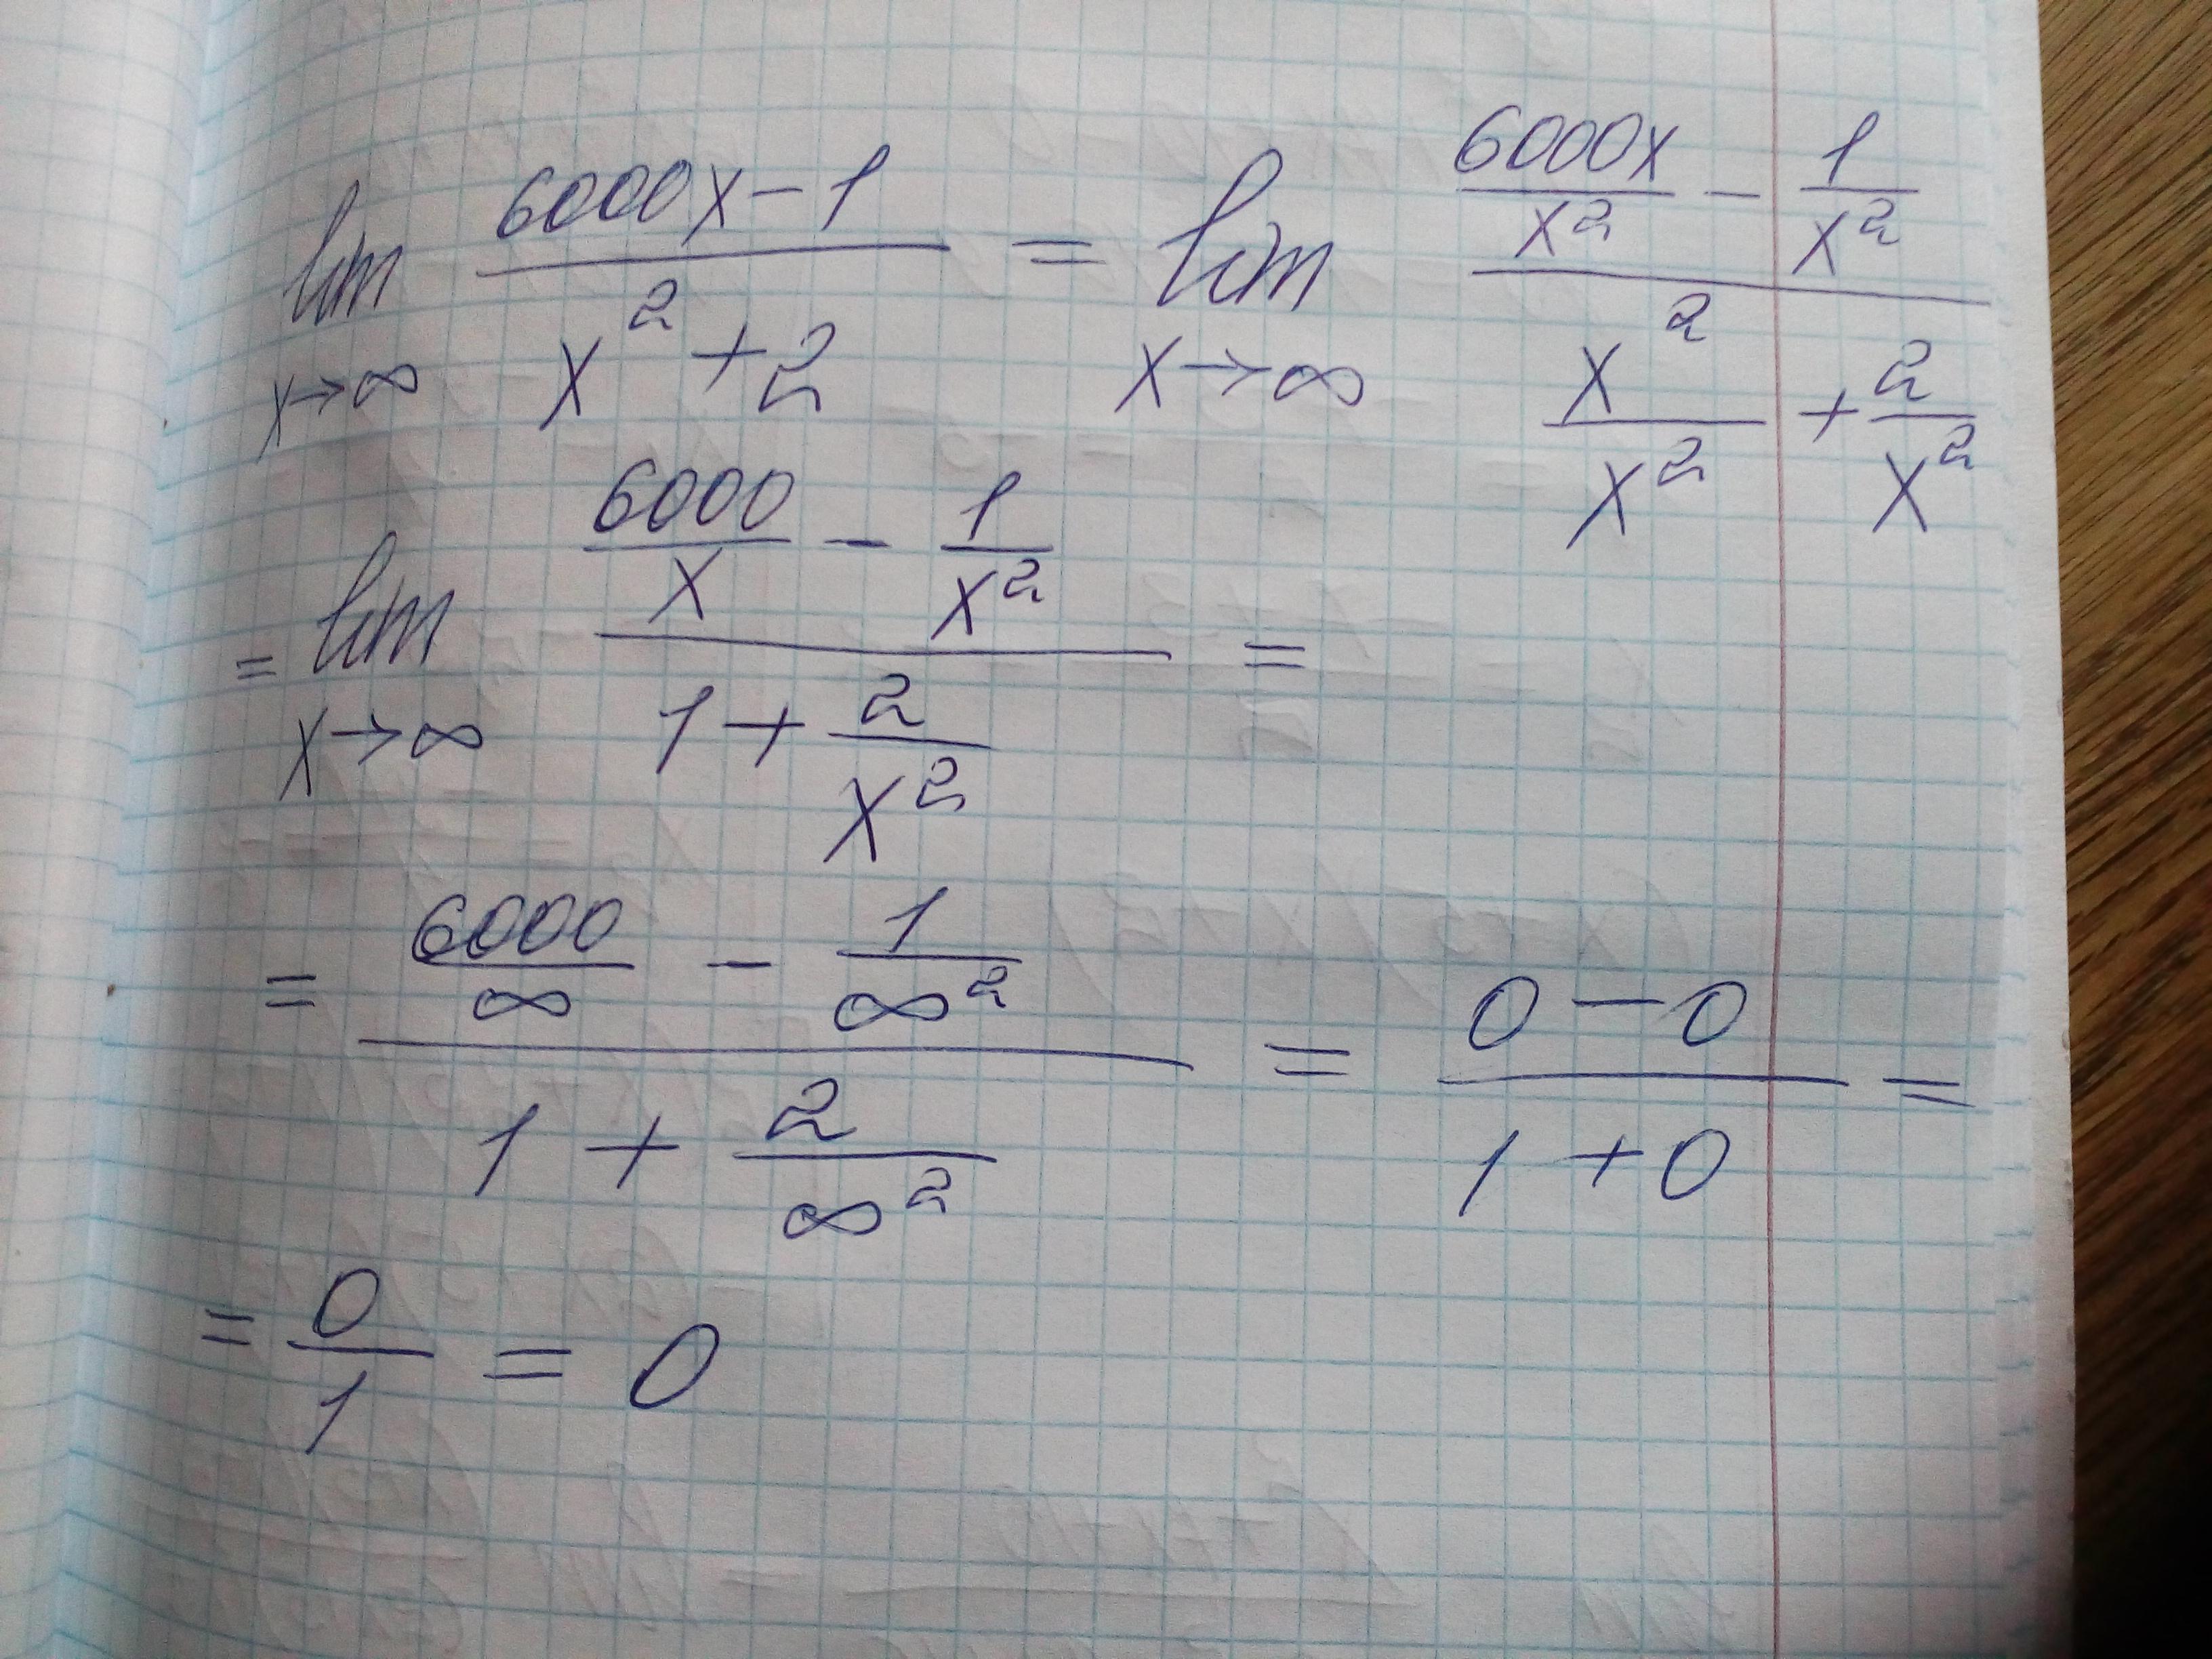 lim x→∞ (6000x − 1)/(x² + 2) = lim x→∞ (6000x/x² − 1/x²)/(x²/x² + 2/x²)
= lim x→∞ (6000/x − 1/x²)/(1 + 2/x²) =
= (6000/∞ − 1/∞²)/(1 + 2/∞²) = (0 − 0)/(1 + 0) =
= 0/1 = 0